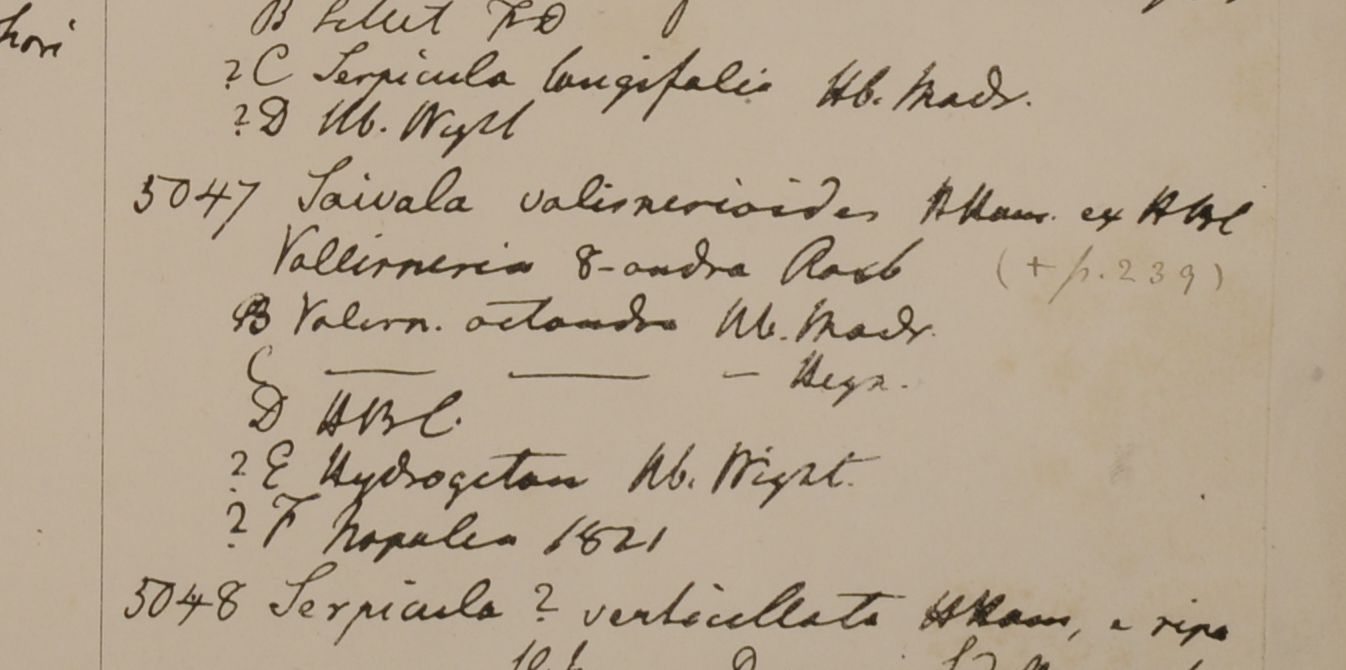 B Silhet FD
? C Serpicula longifolia Hb. Madr.
? D Hb. Wight
5047 Saivala valisnerioides HHam. ex HBC
Vallisneria 8-andra Roxb (+ p. 239)
B Valisn. octandra Hb. Madr.
C — — — Heyn.
D HBC.
? E Hydrogeton Hb. Wight.
? F Napalea 1821
5048 Serpicula ? verticillata HHam, e ripa